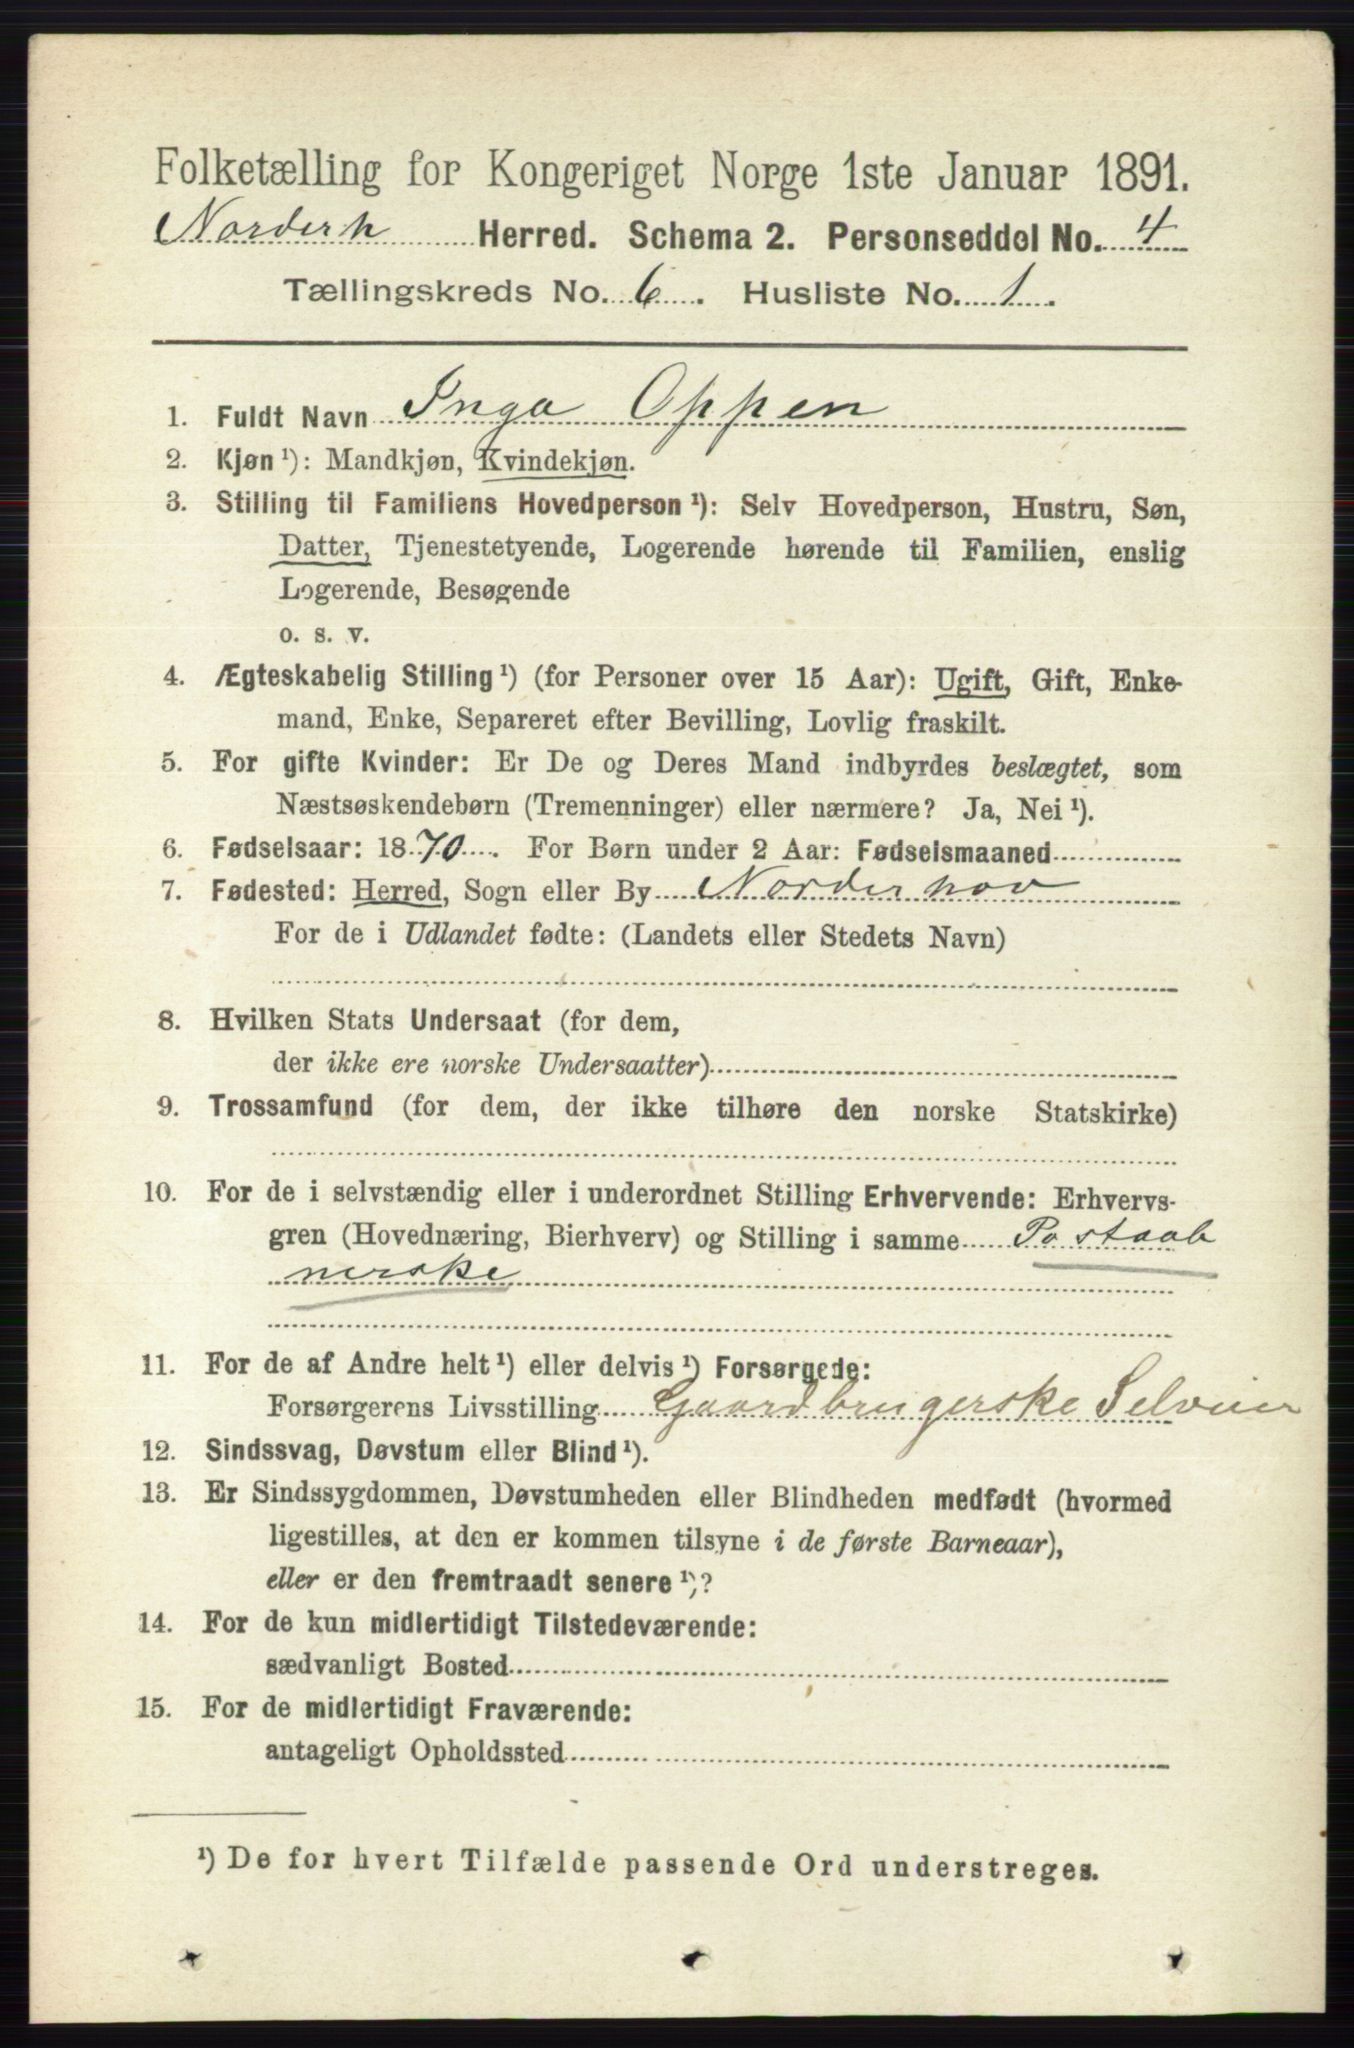 Folketælling for Kongeriget Norge 1ste Januar 1891.
Norderh Herred. Schema 2. Personseddel No. 4
Tællingskreds No. 6. Husliste No. 1.
1. Fuldt Navn Inga Oppen
2. Kjøn ¹): Mandkjøn, Kvindekjøn.
3. Stilling til Familiens Hovedperson ¹): Selv Hovedperson, Hustru, Søn,
Datter, Tjenestetyende, Logerende hørende til Familien, enslig
Logerende, Besøgende
o. s. v.
4. Ægteskabelig Stilling ¹) (for Personer over 15 Aar): Ugift, Gift, Enke-
mand, Enke, Separeret efter Bevilling, Lovlig fraskilt.
5. For gifte Kvinder: Er De og Deres Mand indbyrdes beslægtet, som
Næstsøskendebørn (Tremenninger) eller nærmere? Ja, Nei ¹).
6. Fødselsaar: 1870. For Børn under 2 Aar: Fødselsmaaned
7. Fødested: Herred, Sogn eller By Norderhov
For de i Udlandet fødte: (Landets eller Stedets Navn)
8. Hvilken Stats Undersaat (for dem,
der ikke ere norske Undersaatter)
9. Trossamfund (for dem, der ikke tilhøre den norske Statskirke)
10. For de i selvstændig eller i underordnet Stilling Erhvervende: Erhvervs-
gren (Hovednæring, Bierhverv) og Stilling i samme Postaab
nerske
11. For de af Andre helt ¹) eller delvis ¹) Forsørgede:
Forsørgerens Livsstilling Gaardbrugerske Selveier
12. Sindssvag, Døvstum eller Blind ¹).
13. Er Sindssygdommen, Døvstumheden eller Blindheden medfødt (hvormed
ligestilles, at den er kommen tilsyne i de første Barneaar),
eller er den fremtraadt senere ¹)?
14. For de kun midlertidigt Tilstedeværende:
sædvanligt Bosted
15. For de midlertidigt Fraværende:
antageligt Opholdssted
¹) De for hvert Tilfælde passende Ord understreges.